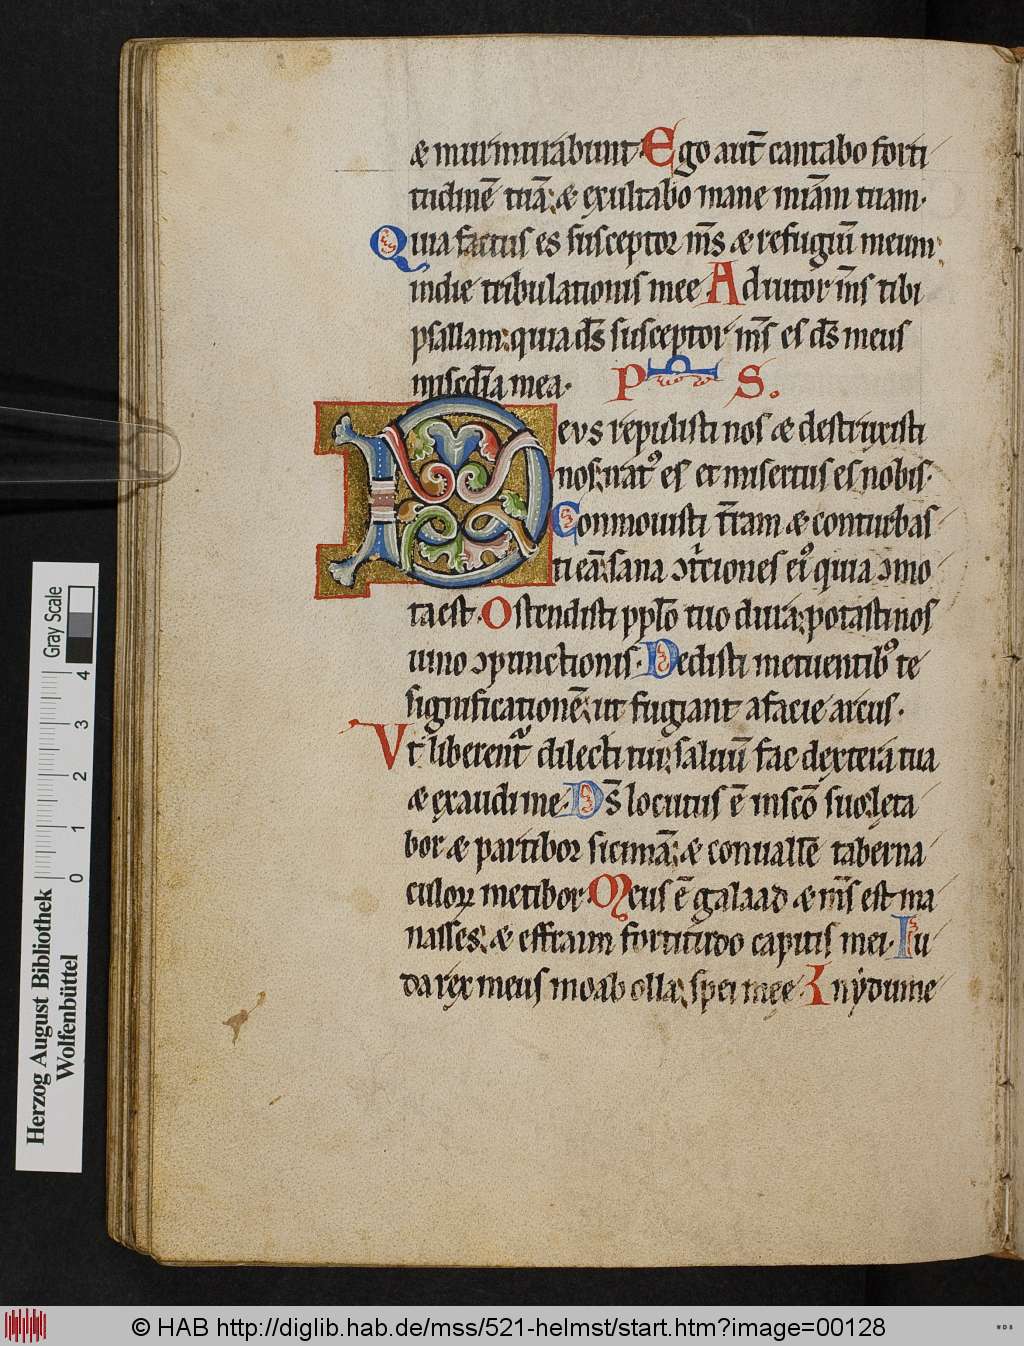 æ murmurabunt. Ego aut̄ cantabo forti
tudinē tuā: æ exultabo mane mīam tuam.
Quia factus es susceptor m̄s æ refugiū meum
indie tribulationis mee. Adiutor m̄s tibi
psallam: quia ds̄ susceptor m̄s es ds̄ meus
misc̄dia mea. P S.
Devs repulisti nos æ destruxisti
nos: irat᾿ es et misertus es nobis.
Conmouisti t̄ram æ conturbas
ti eā: sana ↄt̄ciones ei᾿ quia ↄmo
ta est. Ostendisti pplo̅ tuo dura: potasti nos
uino ↄpunctionis. Dedisti metuentib᾿ te
significationē: ut fugiant afacie arcus.
Vt liberent᷑ dilecti tui: saluū fac dextera tua
æ exaudi me. Ds̄ locutus ē insco̅ suo: lęta
bor æ partibor sicimā: æ conuallē taberna
culoꝝ metibor. Meus ē galaad æ m̄s est ma
nasses: æ effraim fortitudo capitis mei. Iu
da rex meus moab olla: spei męe. In ẏdume
Herzog August Bibliothek
Wolfenbüttel
0 1 2 3 4
Gray Scale
© HAB http://diglib.hab.de/mss/521-helmst/start.htm?image=00128
WDB